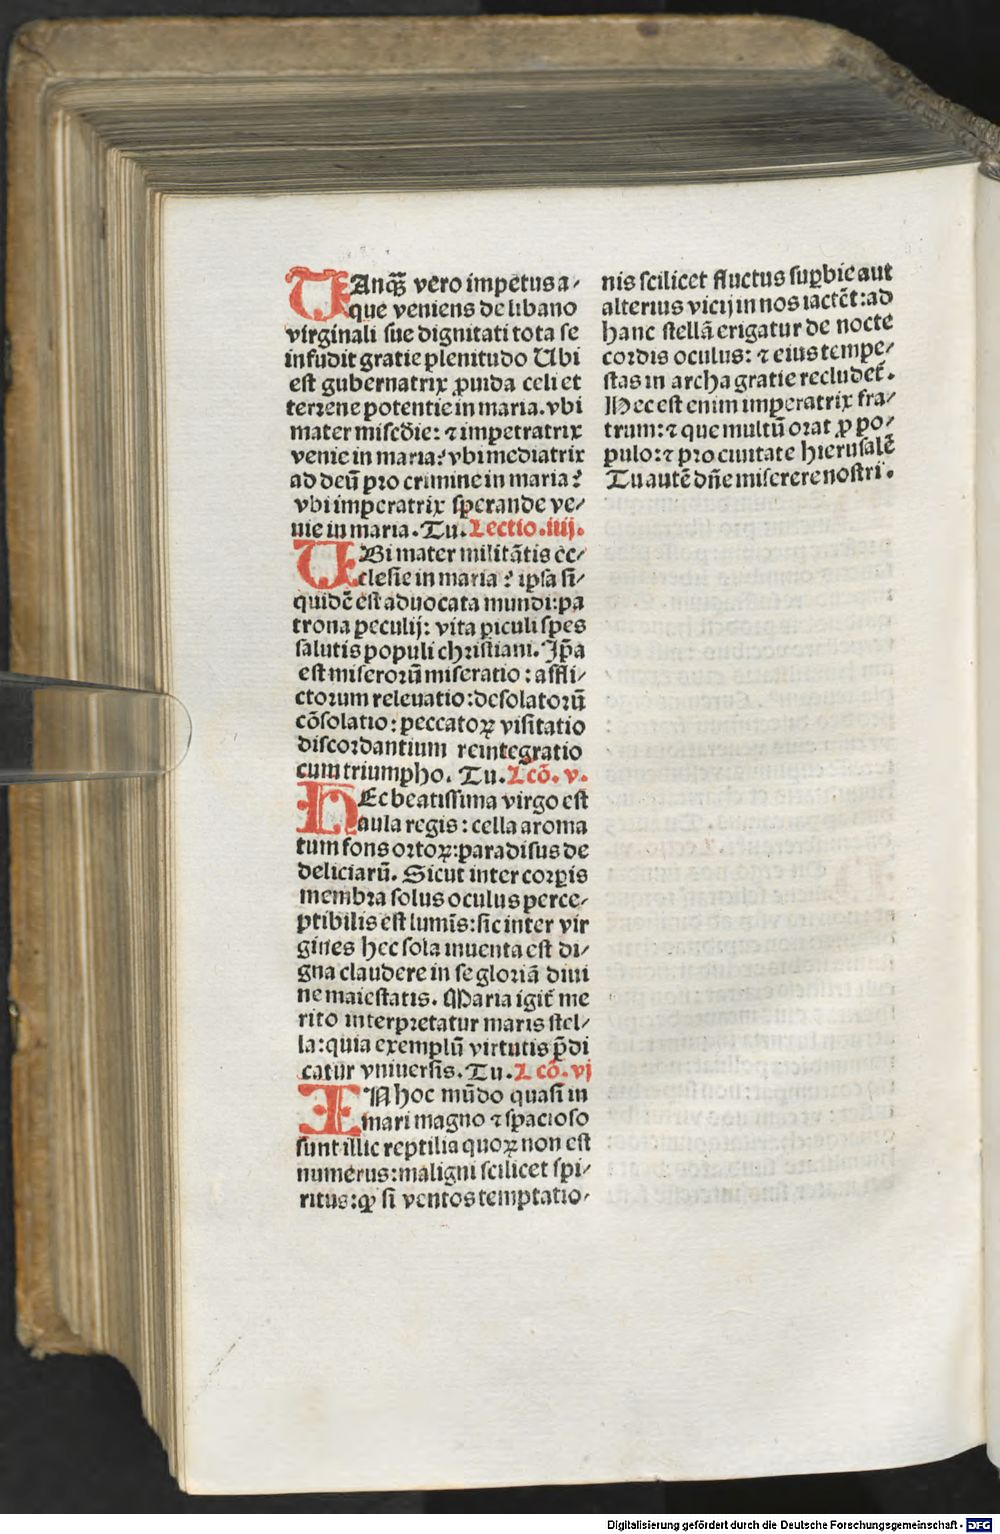 TAnqꝫ̄ vero impetus a⸗
que veniens de libano
virginali sue dignitati tota se
infudit gratie plenitudo Ubi
est gubernatrix ꝓuida celi et
terrene potentie in maria. vbi
mater misc̄die: ⁊ impetratrix
venie in maria? vbi mediatrix
ad deū pro crimine in maria?
vbi imperatrix sperande ve⸗
nie in maria. Tu. Lectio. iiij.
UBi mater militātis ec⸗
clesie in maria? ipsa si⸗
quidē est aduocata mundi: pa
trona peculij: vita ꝑiculi spes
salutis populi christiani. Jp̄a
est miserorū miseratio: affli⸗
ctorum releuatio: desolatorū
cōsolatio: peccatoꝝ visitatio
discordantium reintegratio
cum triumpho. Tu. Lcō. v.
HEc beatissima virgo est
aula regis: cella aroma
tum fons ortoꝝ: paradisus de
deliciarū. Sicut inter corpis
membra solus oculus perce⸗
ptibilis est lumīs: sic inter vir
gines hec sola inuenta est di⸗
gna claudere in se gloriā diui
ne maiestatis. Maria igit̄ me
rito interpretatur maris stel⸗
la: quia exemplū virtutis p̄di
catur vniuersis. Tu. Lcō. vj
IN hoc mūdo quasi in
mari magno ⁊ spacioso
sunt illic reptilia quoꝝ non est
numerus: maligni scilicet spi⸗
ritus: ꝙ si ventos temptatio⸗
nis scilicet fluctus suꝑbie aut
alterius vicij in nos iactēt: ad
hanc stellā erigatur de nocte
cordis oculus: ⁊ eius tempe⸗
stas in archa gratie recludet̄.
Hec est enim imperatrix fra⸗
trum: ⁊ que multū orat ꝓ po⸗
pulo: ⁊ pro ciuitate hierusalē
Tu autē dn̄e miserere nostri.
Digitalisierung gefördert durch die Deutsche Forschungsgemeinschaft - DFG